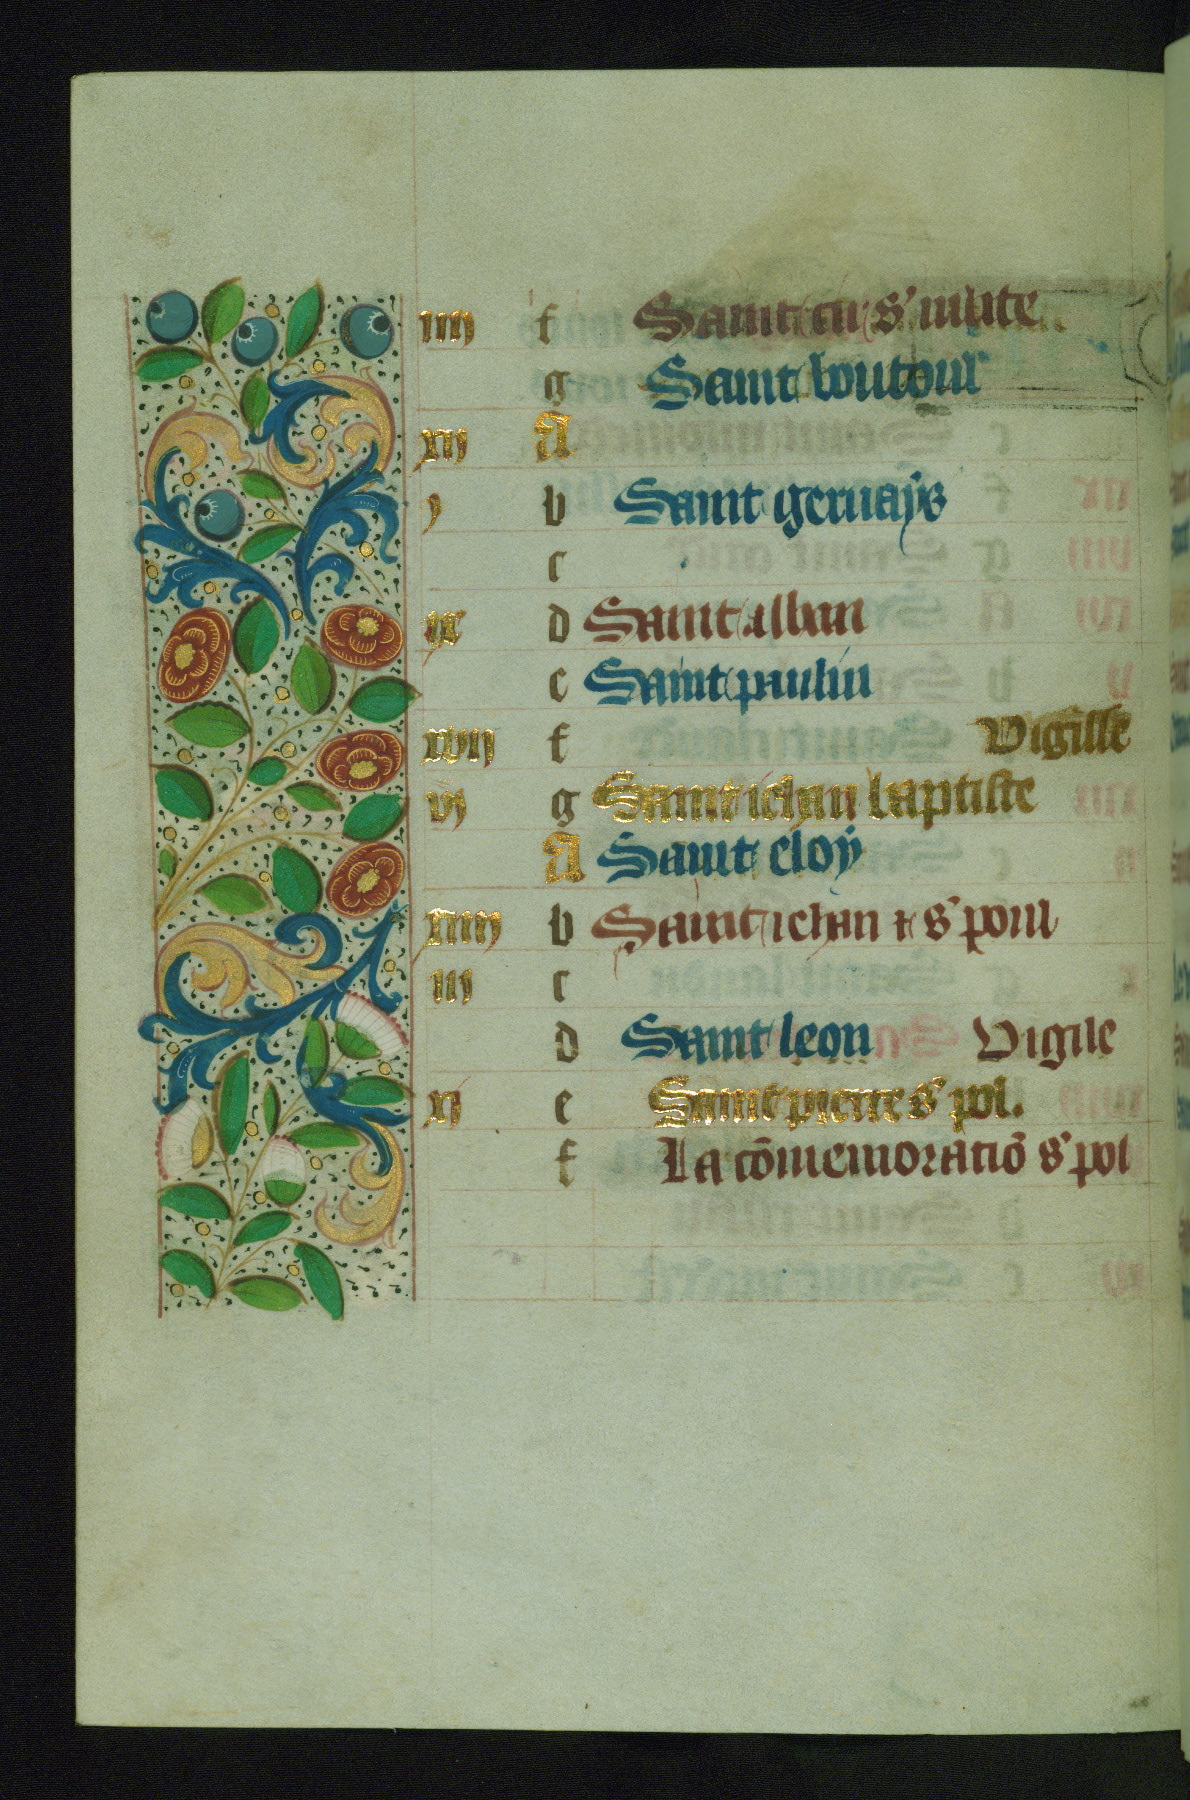 iiii f Saint cir s' iulite
g Saint boutoul
xii A
i b Saint geruays
c
ix d Saint alban
e Saint paulin
xvii f Vigille
vi g Saint iehan baptiste
A Saint eloy
xiiii b Saint iehan & s' poul
iii c
d Saint leon Vigile
xi e Saint pierre s' pol.
f La cōmemoratiō s' pol